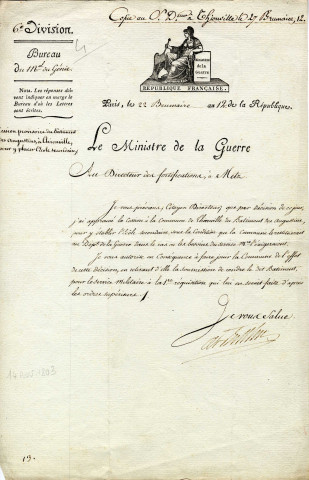 Copie au S. Dteur à Thionville le 27 Brumaire, 12.
6e Division.
Bureau
du Mel du Génie.
Nota. Les réponses doivent
sont indiquer en marge le
Bureau d'où les Lettres
sont écrites.
MINISTRE
DE LA
GUERRE
RÉPUBLIQUE FRANÇAISE.
Cession provisoire du batiment
des augustins, à thionville,
pour y placer l'école secondaire.
Paris, le 22 Brumaire an 12 de la République.
Le Ministre de la Guerre
Au Directeur des fortifications, à Metz
Je vous préviens, Citoyen Directeur, que par décision de ce jour,
j'ai approuvé la Cession à la Commune de Thionville du Batiment des augustins,
pour y établir l'école secondaire sous la Condition que la Commune le restituerait
au Dépt de la Guerre dans le cas où les besoins du service Mre l'exigeraient.
Je vous autorise en Conséquence à faire jouir la Commune de l'effet
de cette décision, en retirant d'elle la soumission de rendre le dit Batiment,
pour le service Militaire à la 1ere requisition qui lui en serait faite d'après
les ordres supérieurs.
Je vous Salue
14 nov. 1803
19.